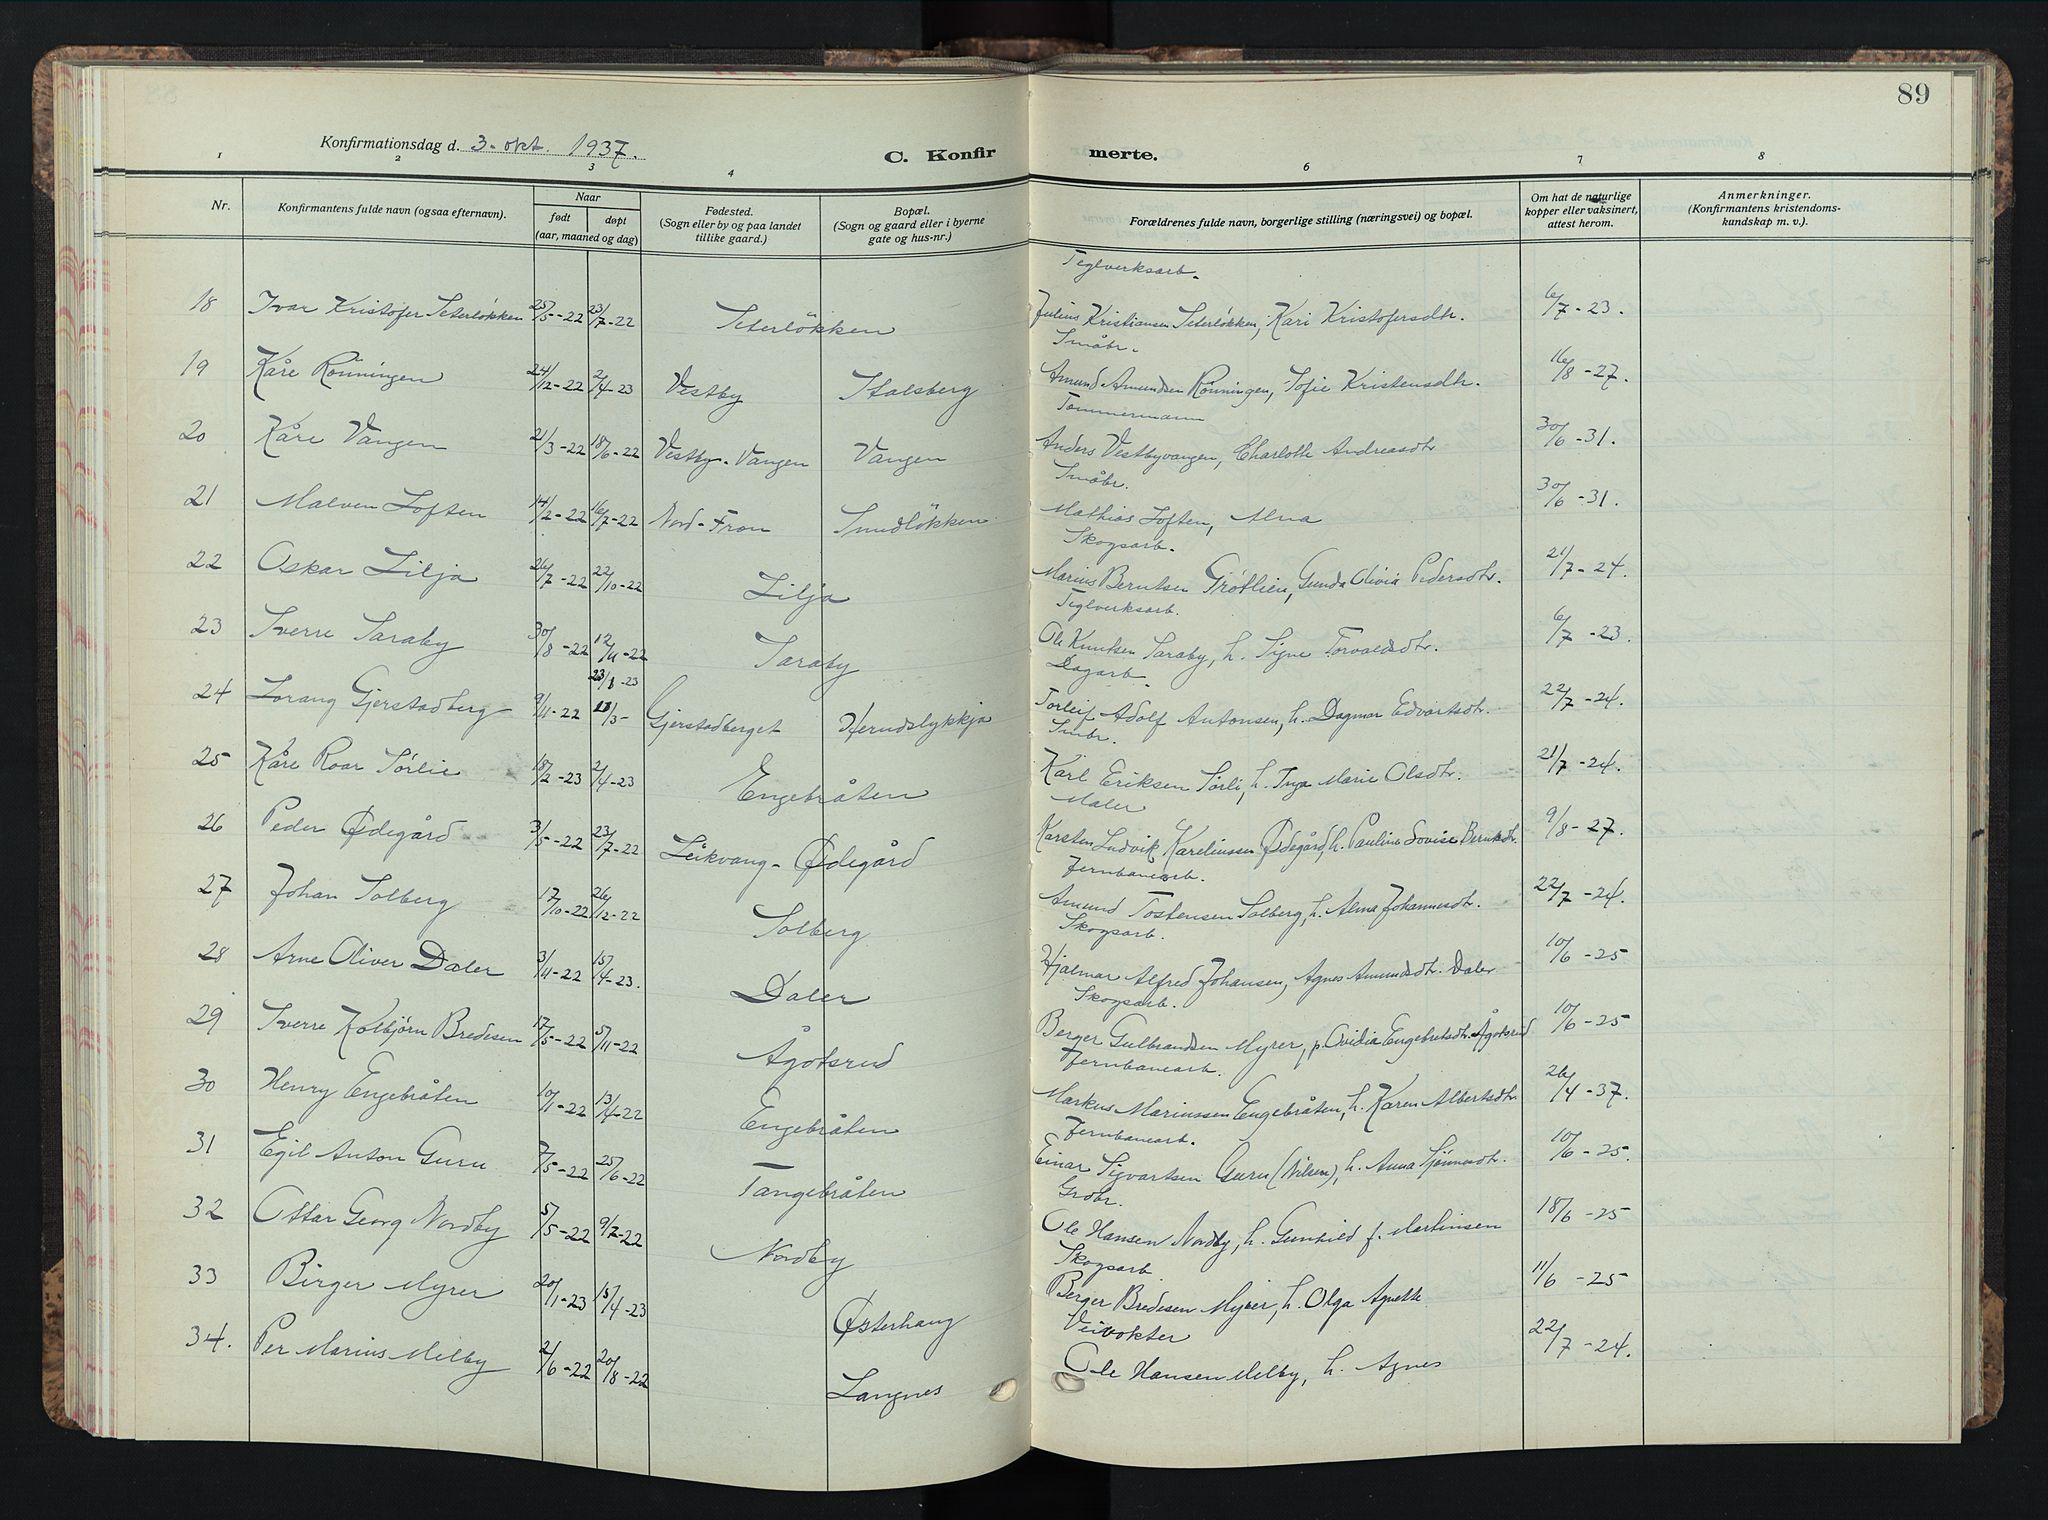 89
Konfirmationsdag d. 3. okt. 1937.
C. Konfirmerte.
1 2 3 4 6 7 8
Nr.
Konfirmantens fulde navn (ogsaa efternavn).
Naar
født døpt
(aar, maaned og dag)
Fødested.
(Sogn eller by og paa landet
tillike gaard.)
Bopæl.
(Sogn og gaard eller i byerne
gate og hus-nr.)
Forældrenes fulde navn, borgerlige stilling (næringsvei) og bopæl.
Om hat de naturlige
kopper eller vaksinert,
attest herom.
Anmerkninger.
(Konfirmantens kristendoms-
kundskap m. v.).
Teglverksarb.
18 Ivar Kristofer Seterløkken 25/5-22 23/7-22 Seterløkken Julius Kristiansen Seterløkken, Kari Kristofersdtr. 6/7-23.
Småbr.
19 Kåre Rönningen 24/12-22 2/4-23 Vestby Stalsberg Amund Amundsen Rönningen, Sofie Kristensdtr. 16/8-27.
Tommermann
20 Kåre Vangen 21/3-22 18/6-22 Vestby-Vangen Vangen Anders Vestbyvangen, Charlotte Andreasdtr 30/6-31.
Småbr.
21 Malven Loften 14/2-22 16/7-22 Nord-Fron Smedlökken Mathias Loften, Alma 30/6-31.
Skogsarb.
22 Oskar Lilja 26/7-22 22/10-22 Lilja Marius Berntsen Grøtlien, Gunda Olivia Pedersdtr. 21/7-24.
Teglverksarb.
23 Sverre Saraby 30/8-22 12/11-22 Saraby Ole Knutsen Saraby, h. Signe Torvaldsdtr. 6/7-23.
Dagarb.
23/1-23
24 Lorang Gjerstadberg 9/11-22 11/3- Gjerstadberget Herudslykkja Torleif Adolf Antonsen, h. Dagmar Edvartsdtr. 22/7-24.
Småbr.
25 Kåre Roar Sørlie 18/2-23 2/4-23 Engebråten Karl Eriksen Sørli, h. Inga Marie Olsdtr. 21/7-24.
Maler
26 Peder Ødegård 3/5-22 23/7-22 Leikvang-Ødegård Karsten Ludvik Kareliussen Ødegård, h. Pauline Lovise Berntsdtr. 9/8-27.
Jernbanearb.
27 Johan Solberg 17/10-22 26/12-22 Solberg Amund Tostensen Solberg, h. Alma Johannesdtr. 22/7-24.
Skogsarb.
28 Arne Oliver Daler 3/11-22 15/4-23. Daler Hjalmar Alfred Johansen, Agnes Amundsdtr. Daler 10/6-25
Skogsarb.
29 Sverre Kolbjørn Bredesen 17/5-22 5/11-22 Ågotsrud Berger Gulbrandsen Myrer, p. Ovidia Engebretsdtr. Ågotsrud 10/6-25
Jernbanearb.
30 Henry Engebråten 10/1-22 13/4-22 Engebråten Markus Mariussen Engebråten, h. Karen Albertsdtr. 26/4-37.
Jernbanearb.
31 Egil Anton Guru 7/5-22 25/6-22 Tangebråten Einar Sigvartsen Guru (Nilsen), h. Anna Sjönnesdtr. 10/6-25.
Grdbr.
32 Ottar Georg Nordby 5/5-22 9/7-22 Nordby Ole Hansen Nordby, h. Gunhild f. Martinsen 18/6-25
Skogsarb.
33 Birger Myrer 20/1-23 15/4-23 Østerhaug Berger Bredesen Myrer, h. Olga Agnette 11/6-25
Veivokter
34. Per Marius Melby 2/6-22 20/8-22 Langnes Ole Hansen Melby, h. Agnes 22/7-24.